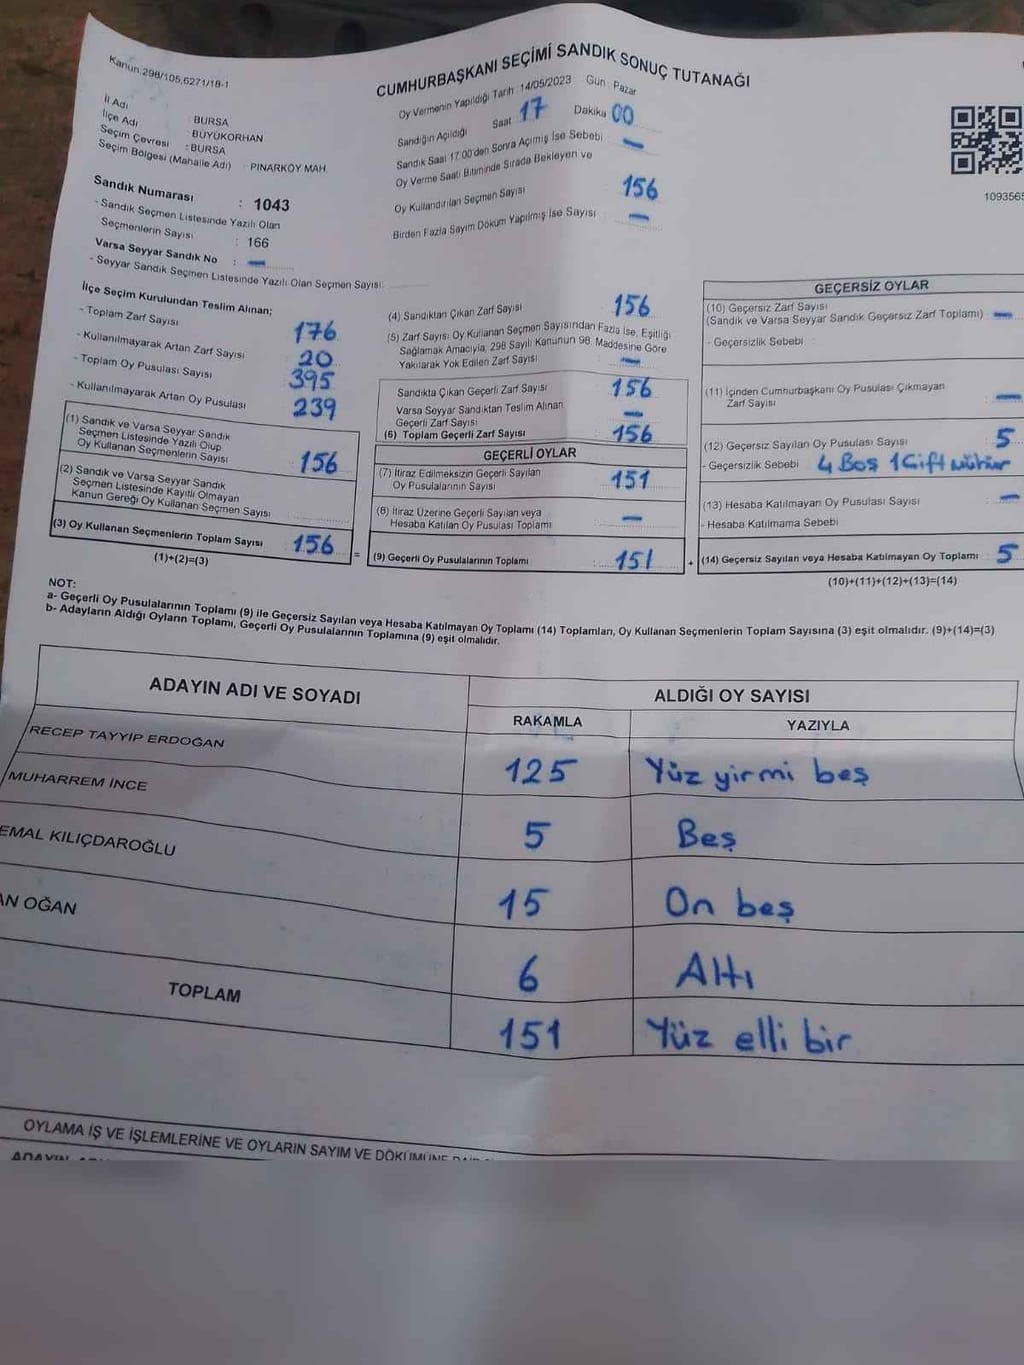 Kanun 298/105,6271/18-1
CUMHURBAŞKANI SEÇİMİ SANDIK SONUÇ TUTANAĞI
Oy Vermenin Yapıldığı Tarih : 14/05/2023 Gün : Pazar
İl Adı : BURSA
İlçe Adı : BÜYÜKORHAN
Seçim Çevresi : BURSA
Seçim Bölgesi (Mahalle Adı) : PINARKÖY MAH.
Sandık Numarası : 1043
- Sandık Seçmen Listesinde Yazılı Olan
Seçmenlerin Sayısı : 166
Varsa Seyyar Sandık No : -
- Seyyar Sandık Seçmen Listesinde Yazılı Olan Seçmen Sayısı:
Sandığın Açıldığı Saat 17 Dakika 00
Sandık Saat 17.00'den Sonra Açılmış İse Sebebi -
Oy Verme Saati Bitiminde Sırada Bekleyen ve
Oy Kullandırılan Seçmen Sayısı 156
Birden Fazla Sayım Döküm Yapılmış İse Sayısı -
1093565
İlçe Seçim Kurulundan Teslim Alınan;
- Toplam Zarf Sayısı 176
- Kullanılmayarak Artan Zarf Sayısı 20
- Toplam Oy Pusulası Sayısı 395
- Kullanılmayarak Artan Oy Pusulası 239
(1) Sandık ve Varsa Seyyar Sandık
Seçmen Listesinde Yazılı Olup
Oy Kullanan Seçmenlerin Sayısı 156
(2) Sandık ve Varsa Seyyar Sandık
Seçmen Listesinde Kayıtlı Olmayan
Kanun Gereği Oy Kullanan Seçmen Sayısı
(3) Oy Kullanan Seçmenlerin Toplam Sayısı 156 =
(1)+(2)=(3)
(4) Sandıktan Çıkan Zarf Sayısı 156
(5) Zarf Sayısı Oy Kullanan Seçmen Sayısından Fazla İse, Eşitliği
Sağlamak Amacıyla, 298 Sayılı Kanunun 98. Maddesine Göre
Yakılarak Yok Edilen Zarf Sayısı -
Sandıkta Çıkan Geçerli Zarf Sayısı 156
Varsa Seyyar Sandıktan Teslim Alınan
Geçerli Zarf Sayısı -
(6) Toplam Geçerli Zarf Sayısı 156
GEÇERLİ OYLAR
(7) İtiraz Edilmeksizin Geçerli Sayılan
Oy Pusulalarının Sayısı 151
(8) İtiraz Üzerine Geçerli Sayılan veya
Hesaba Katılan Oy Pusulası Toplamı -
(9) Geçerli Oy Pusulalarının Toplamı : 151 +
GEÇERSİZ OYLAR
(10) Geçersiz Zarf Sayısı
(Sandık ve Varsa Seyyar Sandık Geçersiz Zarf Toplamı) -
- Geçersizlik Sebebi :
(11) İçinden Cumhurbaşkanı Oy Pusulası Çıkmayan
Zarf Sayısı -
(12) Geçersiz Sayılan Oy Pusulası Sayısı 5
- Geçersizlik Sebebi 4 Boş 1 Çift mühür
(13) Hesaba Katılmayan Oy Pusulası Sayısı -
- Hesaba Katılmama Sebebi
(14) Geçersiz Sayılan veya Hesaba Katılmayan Oy Toplamı : 5
(10)+(11)+(12)+(13)=(14)
NOT:
a- Geçerli Oy Pusulalarının Toplamı (9) ile Geçersiz Sayılan veya Hesaba Katılmayan Oy Toplamı (14) Toplamları, Oy Kullanan Seçmenlerin Toplam Sayısına (3) eşit olmalıdır. (9)+(14)=(3)
b- Adayların Aldığı Oyların Toplamı, Geçerli Oy Pusulalarının Toplamına (9) eşit olmalıdır.
ADAYIN ADI VE SOYADI ALDIĞI OY SAYISI
RAKAMLA YAZIYLA
RECEP TAYYIP ERDOĞAN 125 Yüz yirmi beş
MUHARREM İNCE 5 Beş
EMAL KILIÇDAROĞLU 15 On beş
AN OĞAN 6 Altı
TOPLAM 151 Yüz elli bir
OYLAMA İŞ VE İŞLEMLERİNE VE OYLARIN SAYIM VE DÖKÜMÜNE